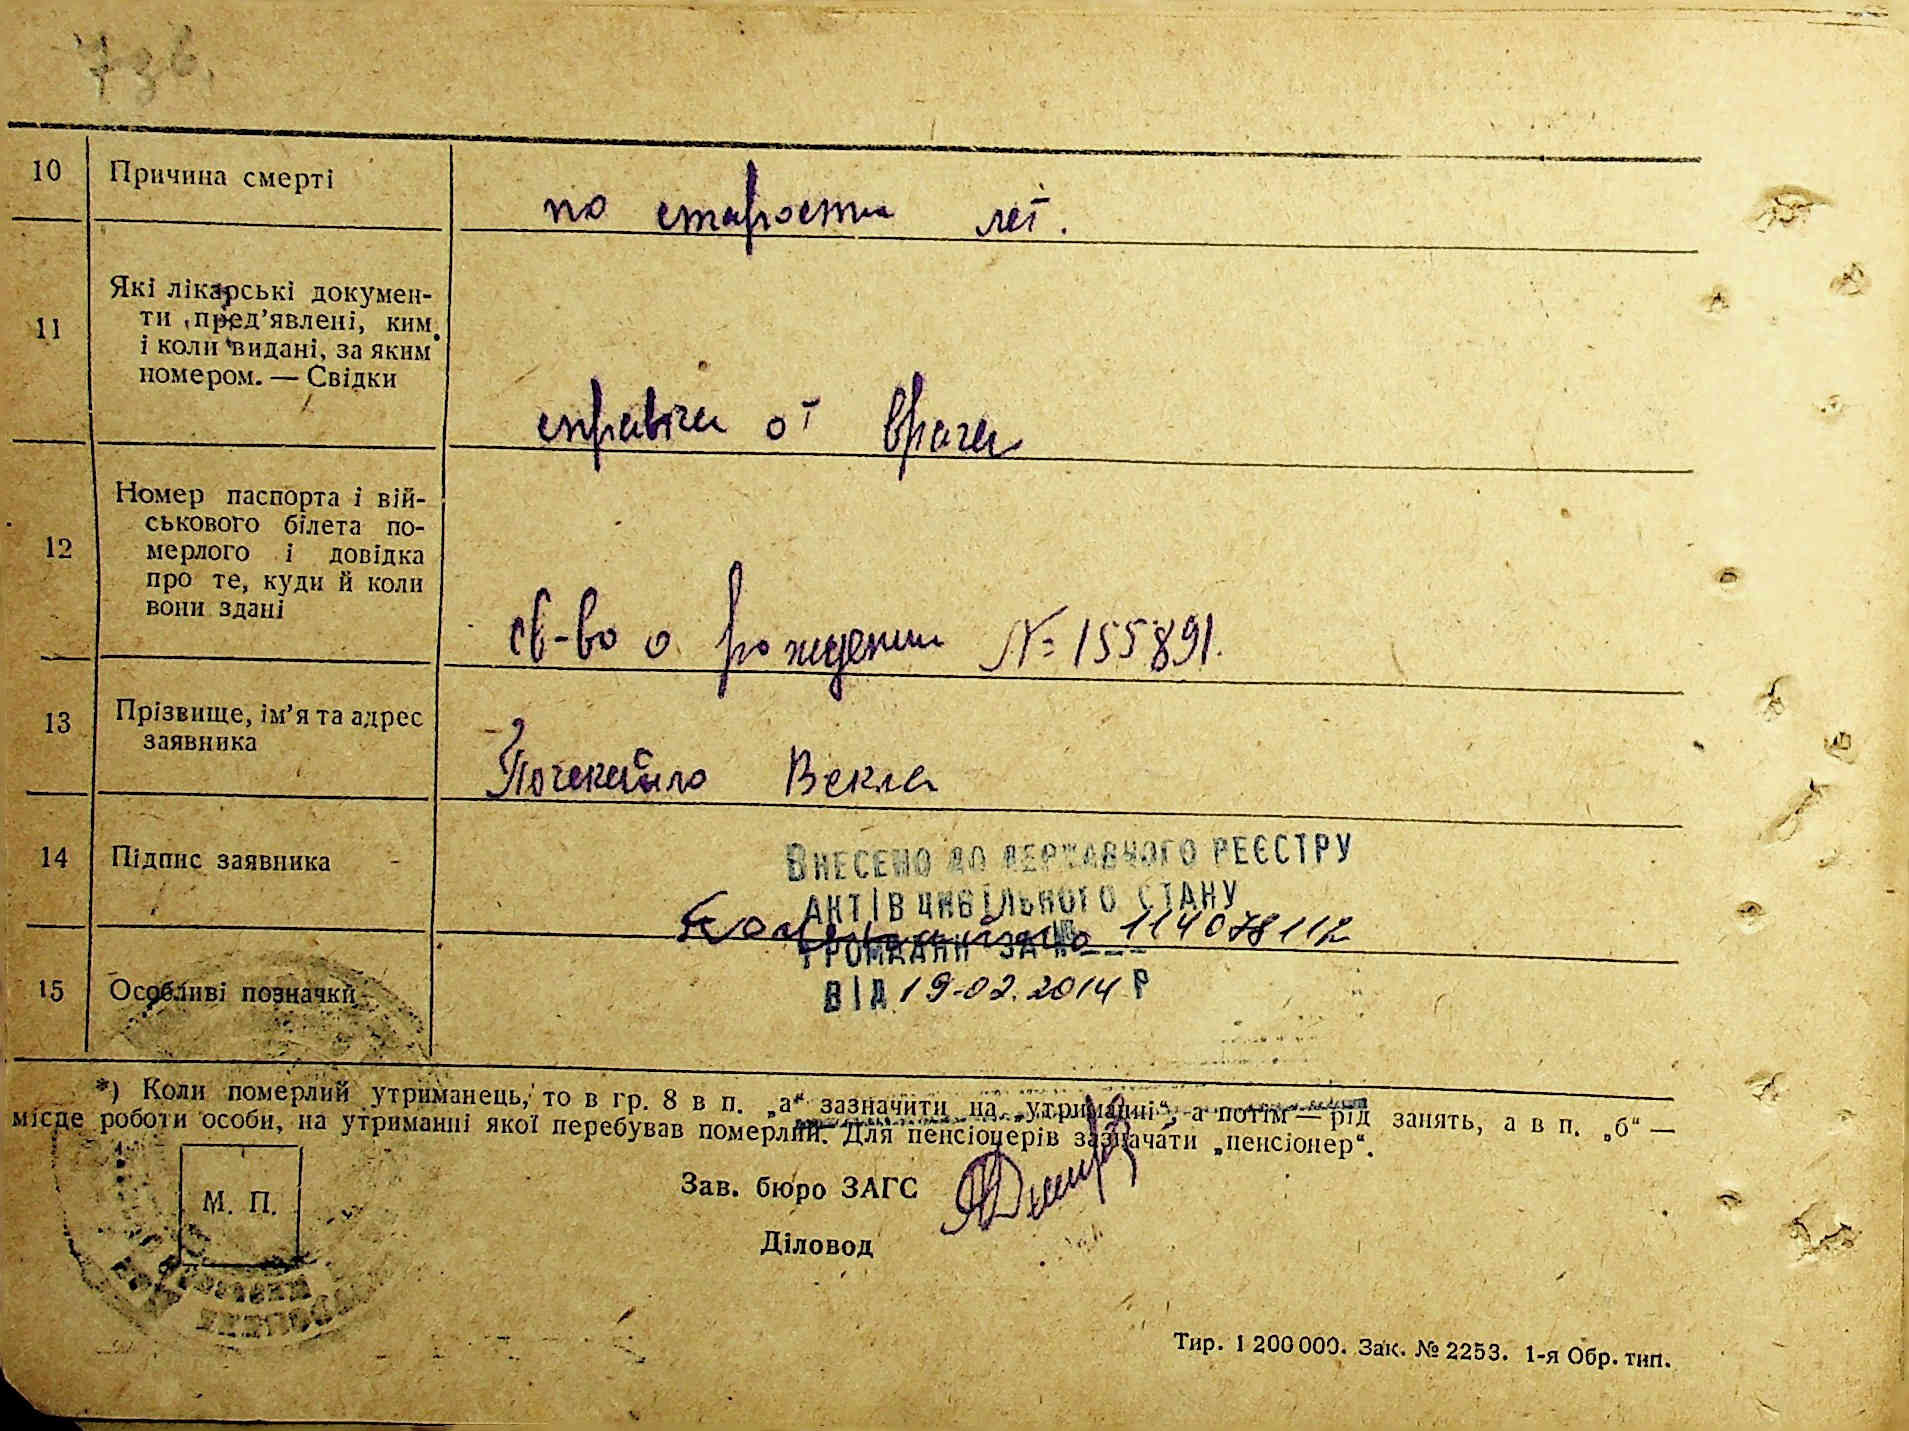 73б.
10 Причина смерті
по старости лет.
11 Які лікарські докумен-
ти пред’явлені, ким
і коли видані, за яким
номером. — Свідки
справка от врача
12 Номер паспорта і вій-
ськового білета по-
мерлого і довідка
про те, куди й коли
вони здані
св-во о рождении № 155891.
13 Прізвище, ім’я та адрес
заявника
Почекайло Векла
14 Підпис заявника
ВНЕСЕНО ДО ДЕРЖАВНОГО РЕЄСТРУ
АКТІВ ЦИВІЛЬНОГО СТАНУ
ГРОМАДЯН ЗА № 114078112
15 Особливі позначки
ВІД 19.02.2014 Р
*) Коли померлий утриманець, то в гр. 8 в п. „а“ зазначити на „утриманні“, а потім — рід занять, а в п. „б“ —
місце роботи особи, на утриманні якої перебував померлий. Для пенсіонерів зазначати „пенсіонер“.
М. П.
Зав. бюро ЗАГС
Діловод
Тир. 1 200 000. Зак. № 2253. 1-я Обр. тип.